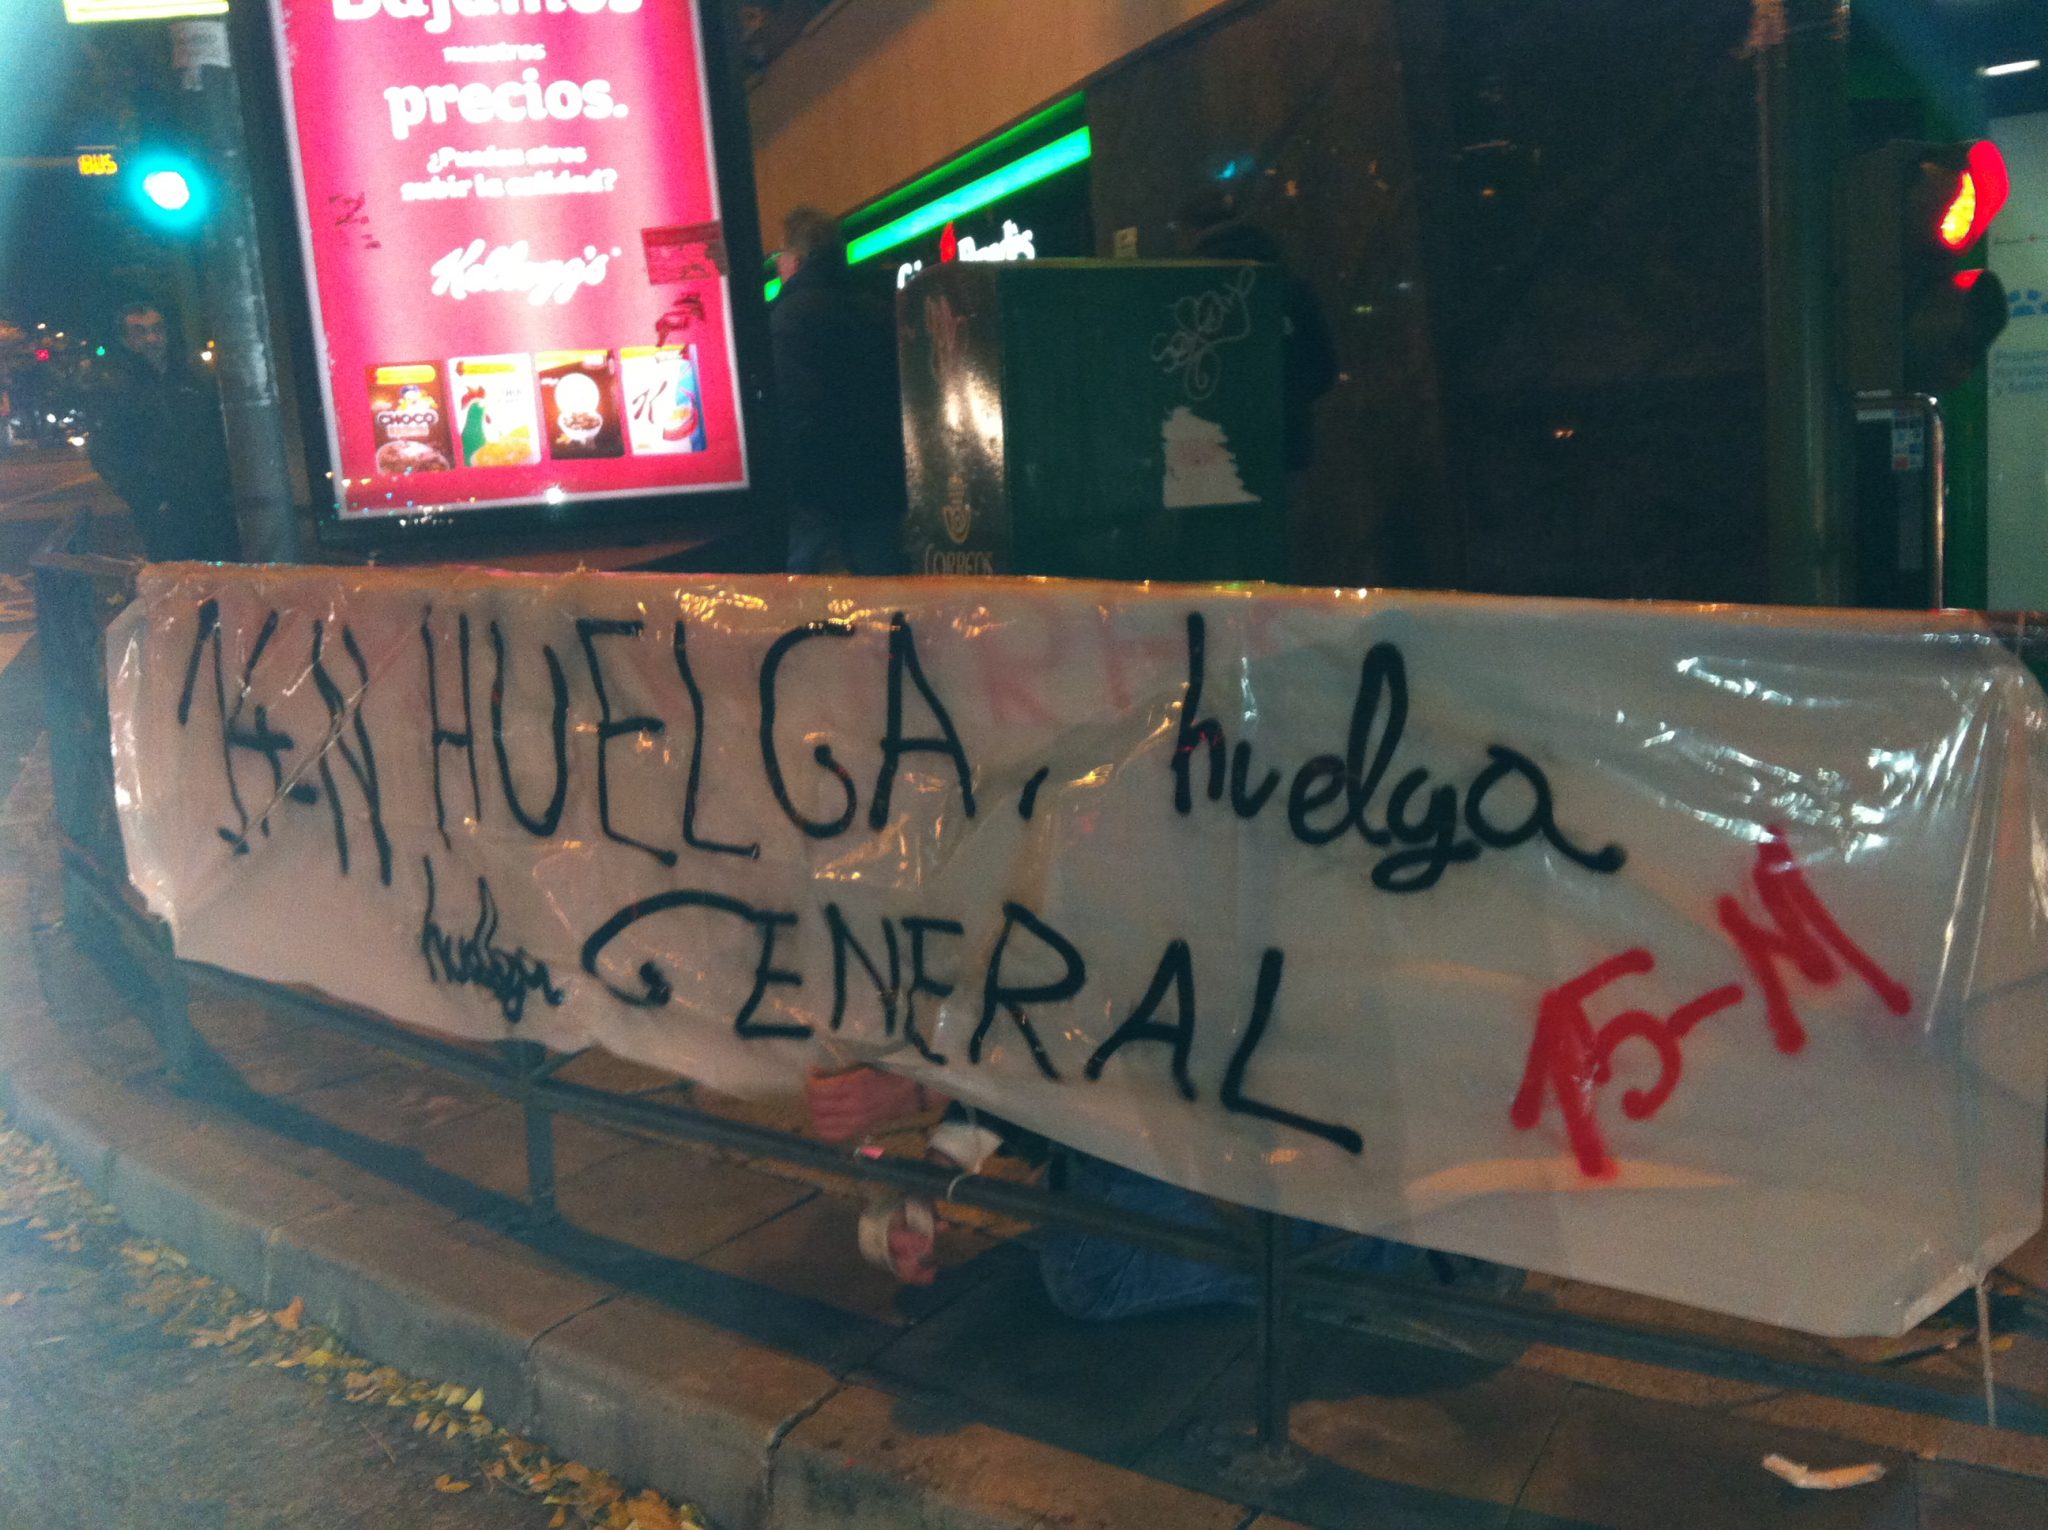 BUS
Bajamos
nuestros
precios.
¿Pueden otros
subir la calidad?
Kellogg's
CHOCO
K
CORREOS
14-N HUELGA, huelga
huelga GENERAL
15-M